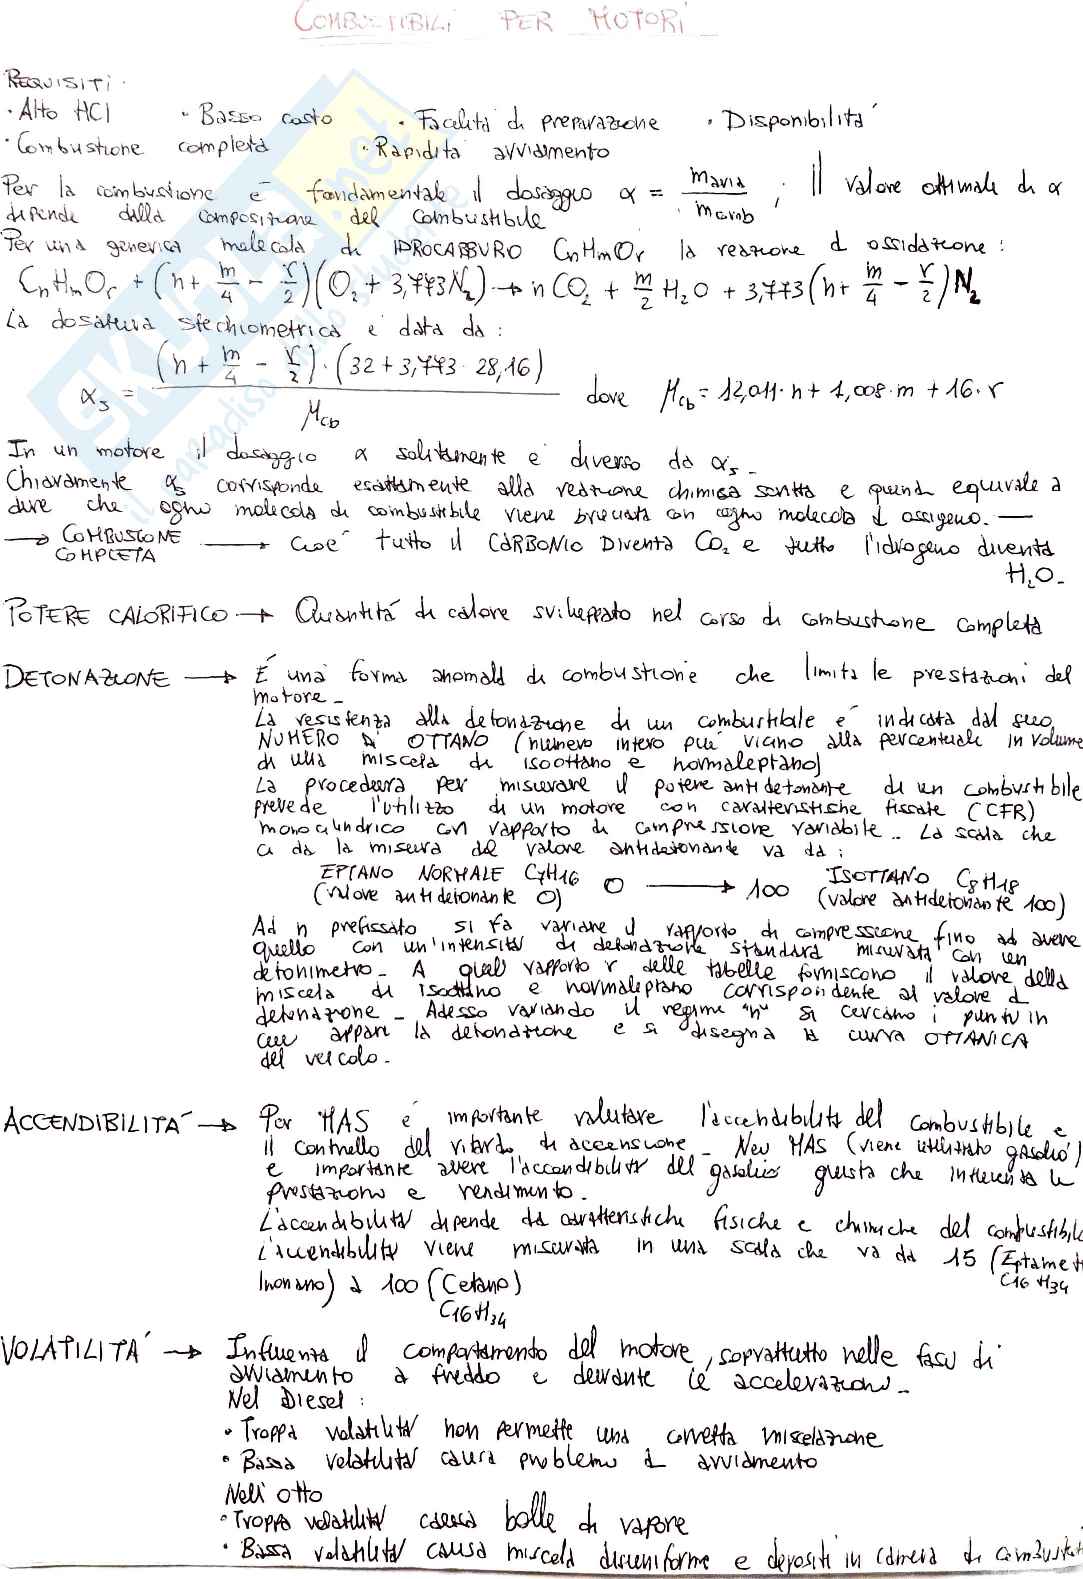 COMBUSTIBILI PER MOTORI
REQUISITI.
· Alto HCI · Basso costo · Facilità di preparazione · Disponibilità
· Combustione completa · Rapidità avviamento
Per la combustione è fondamentale il dosaggio α = m aria / m comb ; Il valore ottimale di α
dipende dalla composizione del combustibile
Per una generica molecola di IDROCARBURO CnHmOr la reazione d ossidazione:
CnHmOr + (n + m/4 - r/2)(O2 + 3,773N2) → n CO2 + m/2 H2O + 3,773(n + m/4 - r/2)N2
La dosatura stechiometrica è data da:
αs = (n + m/4 - r/2)·(32 + 3,773· 28,16) / Mcb dove Mcb = 12,011·n + 1,008·m + 16·r
In un motore il dosaggio α solitamente è diverso da αs-
Chiaramente αs corrisponde esattamente alla reazione chimica scritta e quindi equivale a
dire che ogni molecola di combustibile viene bruciata con ogni molecola d ossigeno. —
→ COMBUSTIONE COMPLETA → Cioè tutto il CARBONIO Diventa CO2 e tutto l'idrogeno diventa
H2O-
POTERE CALORIFICO → Quantità di calore sviluppato nel corso di combustione completa
DETONAZIONE → È una forma anomala di combustione che limita le prestazioni del
motore-
La resistenza alla detonazione di un combustibile è indicata dal suo
NUMERO DI OTTANO (numero intero più vicino alla percentuale in volume
di una miscela di isoottano e normaleptano)
La procedura per misurare il potere antidetonante di un combustibile
prevede l'utilizzo di un motore con caratteristiche fissate (CFR)
monocilindrico con rapporto di compressione variabile-. La scala che
ci dà la misura del valore antidetonante va da:
EPTANO NORMALE C7H16 0 → 100 ISOTTANO C8H18
(valore antidetonante 0) (valore antidetonante 100)
Ad n prefissato si fa variare il rapporto di compressione fino ad avere
quello con un'intensità di detonazione standard misurata con un
detonimetro- A quel rapporto r delle tabelle forniscono il valore della
miscela di isoottano e normaleptano corrispondente al valore d
detonazione- Adesso variando il regime "n" si cercano i punti in
cui appare la detonazione e si disegna la curva OTTANICA
del veicolo-
ACCENDIBILITÀ → Per MAS è importante valutare l'accendibilità del combustibile e
il controllo del ritardo di accensione- Nei MAS (viene utilizzato gasolio)
è importante avere l'accendibilità del gasolio giusta che influenza le
prestazioni e rendimento.
L'accendibilità dipende da caratteristiche fisiche e chimiche del combustibile
L'accendibilità viene misurata in una scala che va da 15 (Eptameti
lnonano) a 100 (Cetano) C16H34
C16H34
VOLATILITÀ → Influenza il comportamento del motore, soprattutto nelle fasi di
avviamento a freddo e durante le accelerazioni-
Nel Diesel:
· Troppa volatilità non permette una corretta miscelazione
· Bassa volatilità causa problemi d avviamento
Nell'otto
· Troppa volatilità causa bolle di vapore
· Bassa volatilità causa miscela disuniforme e depositi in camera di combusti
SKUOLA.net
il paradiso dello studente